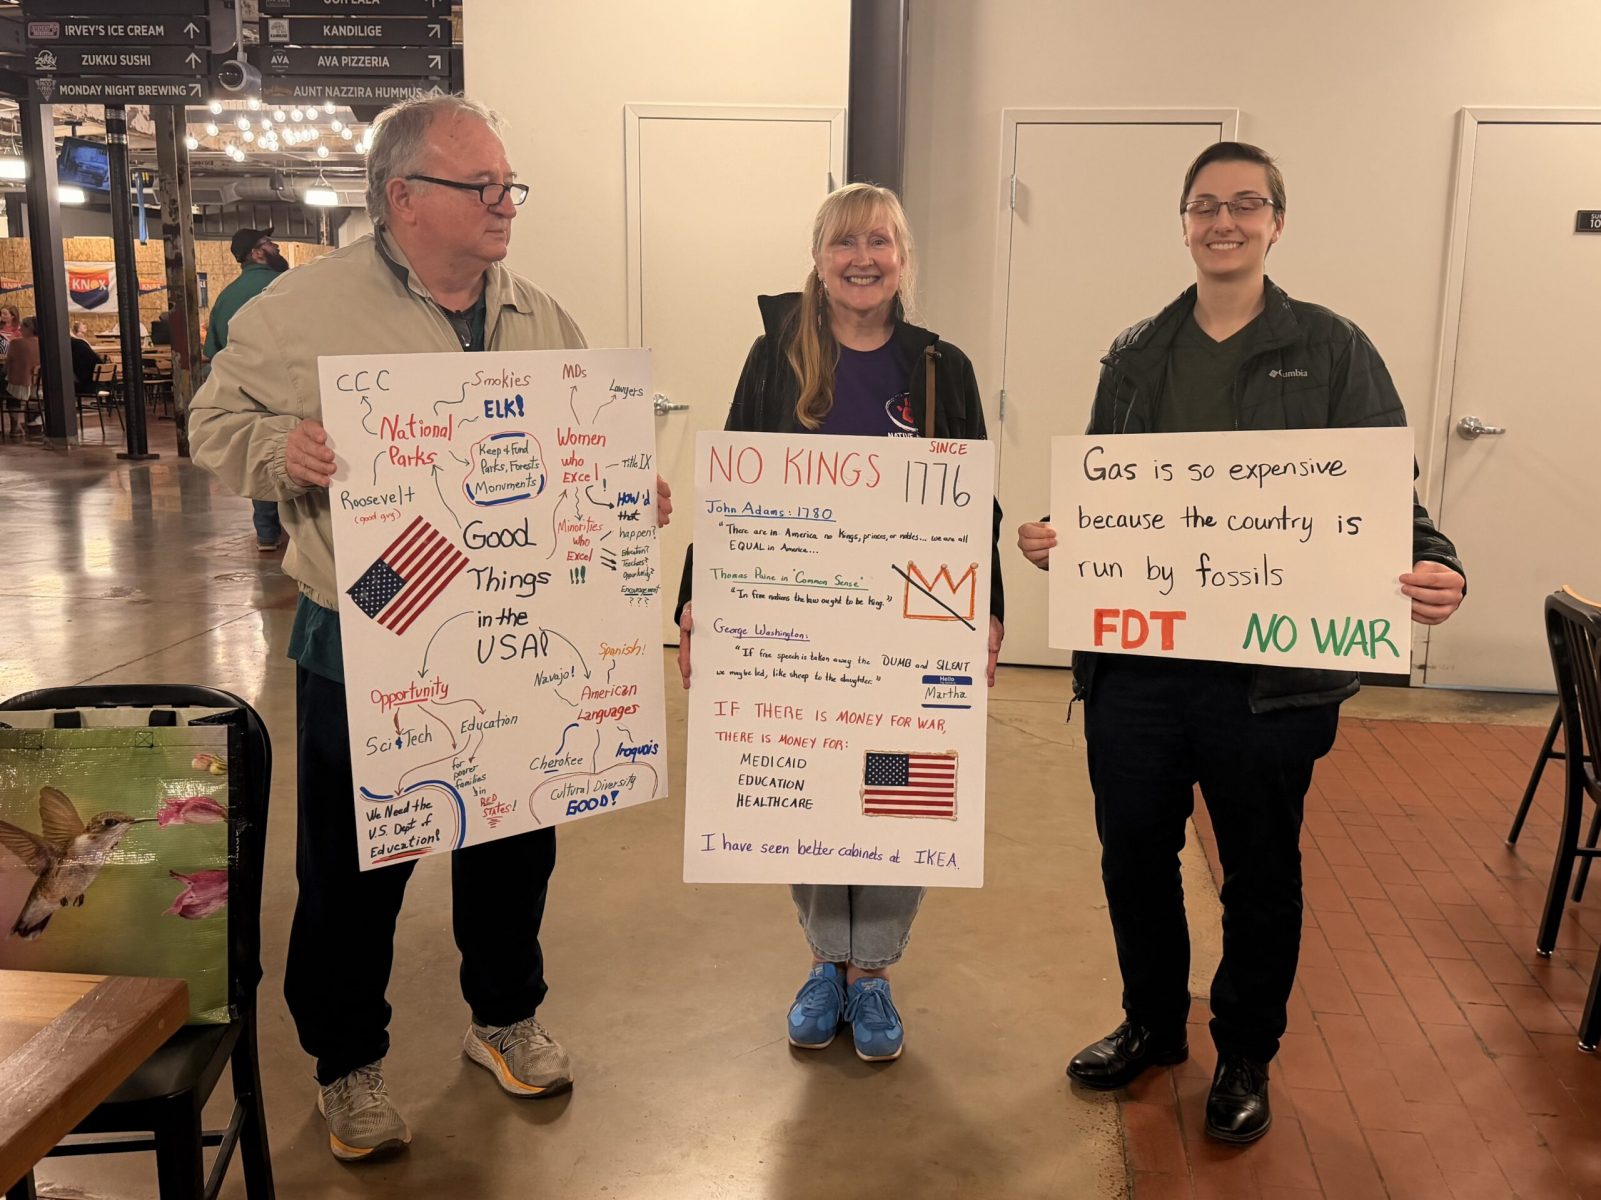 IRVEY'S ICE CREAM
ZUKKU SUSHI
MONDAY NIGHT BREWING
KANDILIGE
AVA PIZZERIA
AUNT NAZZIRA HUMMUS
KNOX
CCC
Smokies
ELK!
MDs
Lawyers
National
Parks
Keep & Fund
Parks, Forests
Monuments
Women
who
Excel!
Title IX
How'd
that
happen?
Education?
Teachers?
Opportunity?
Encouragement
? ? ?
Roosevelt
(good guy)
Minorities
who
Excel
!!!
Good
Things
in the
USA!
Opportunity
Sci & Tech
Education
for
poorer
families
in
RED
STATES!
We Need the
U.S. Dept of
Education!
Spanish!
Navajo!
American
Languages
Cherokee
Iroquois
Cultural Diversity
GOOD!
NATIVE
NO KINGS
SINCE
1776
John Adams: 1780
"There are in America no Kings, princes, or nobles... we are all
EQUAL in America...
Thomas Paine in "Common Sense"
"In free nations the law ought to be king."
George Washington:
"If free speech is taken away the DUMB and SILENT
we may be led, like sheep to the slaughter."
Hello
Martha
IF THERE IS MONEY FOR WAR,
THERE IS MONEY FOR:
MEDICAID
EDUCATION
HEALTHCARE
I have seen better cabinets at IKEA.
Columbia
Gas is so expensive
because the country is
run by fossils
FDT NO WAR